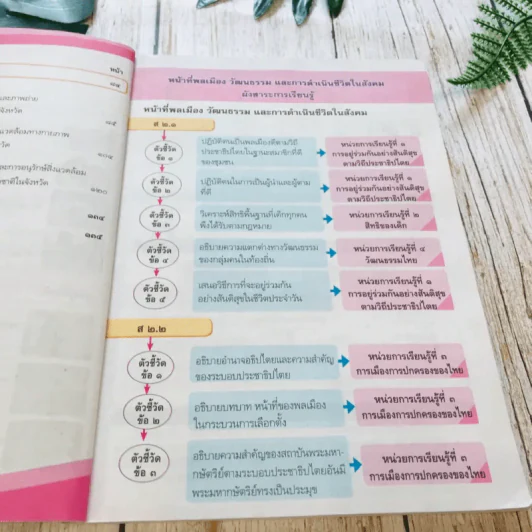 หน้า
๘๘
และภาพถ่าย
จังหวัด
๑๐๔
๑๒๐
๑๓๔
๑๓๕
หน้าที่พลเมือง วัฒนธรรม และการดำเนินชีวิตในสังคม
ผังสาระการเรียนรู้
หน้าที่พลเมือง วัฒนธรรม และการดำเนินชีวิตในสังคม
ส ๒.๑
ตัวชี้วัด
ข้อ ๑
ปฏิบัติตนเป็นพลเมืองดีตามวิถี
ประชาธิปไตยในฐานะสมาชิกที่ดี
ของชุมชน
หน่วยการเรียนรู้ที่ ๑
การอยู่ร่วมกันอย่างสันติสุข
ตามวิถีประชาธิปไตย
ตัวชี้วัด
ข้อ ๒
ปฏิบัติตนในการเป็นผู้นำและผู้ตาม
ที่ดี
หน่วยการเรียนรู้ที่ ๑
การอยู่ร่วมกันอย่างสันติสุข
ตามวิถีประชาธิปไตย
ตัวชี้วัด
ข้อ ๓
วิเคราะห์สิทธิพื้นฐานที่เด็กทุกคน
พึงได้รับตามกฎหมาย
หน่วยการเรียนรู้ที่ ๒
สิทธิของเด็ก
ตัวชี้วัด
ข้อ ๔
อธิบายความแตกต่างทางวัฒนธรรม
ของกลุ่มคนในท้องถิ่น
หน่วยการเรียนรู้ที่ ๔
วัฒนธรรมไทย
ตัวชี้วัด
ข้อ ๕
เสนอวิธีการที่จะอยู่ร่วมกัน
อย่างสันติสุขในชีวิตประจำวัน
หน่วยการเรียนรู้ที่ ๑
การอยู่ร่วมกันอย่างสันติสุข
ตามวิถีประชาธิปไตย
ส ๒.๒
ตัวชี้วัด
ข้อ ๑
อธิบายอำนาจอธิปไตยและความสำคัญ
ของระบอบประชาธิปไตย
หน่วยการเรียนรู้ที่ ๓
การเมืองการปกครองของไทย
ตัวชี้วัด
ข้อ ๒
อธิบายบทบาท หน้าที่ของพลเมือง
ในกระบวนการเลือกตั้ง
หน่วยการเรียนรู้ที่ ๓
การเมืองการปกครองของไทย
ตัวชี้วัด
ข้อ ๓
อธิบายความสำคัญของสถาบันพระมหา-
กษัตริย์ตามระบอบประชาธิปไตยอันมี
พระมหากษัตริย์ทรงเป็นประมุข
หน่วยการเรียนรู้ที่ ๓
การเมืองการปกครองของไทย